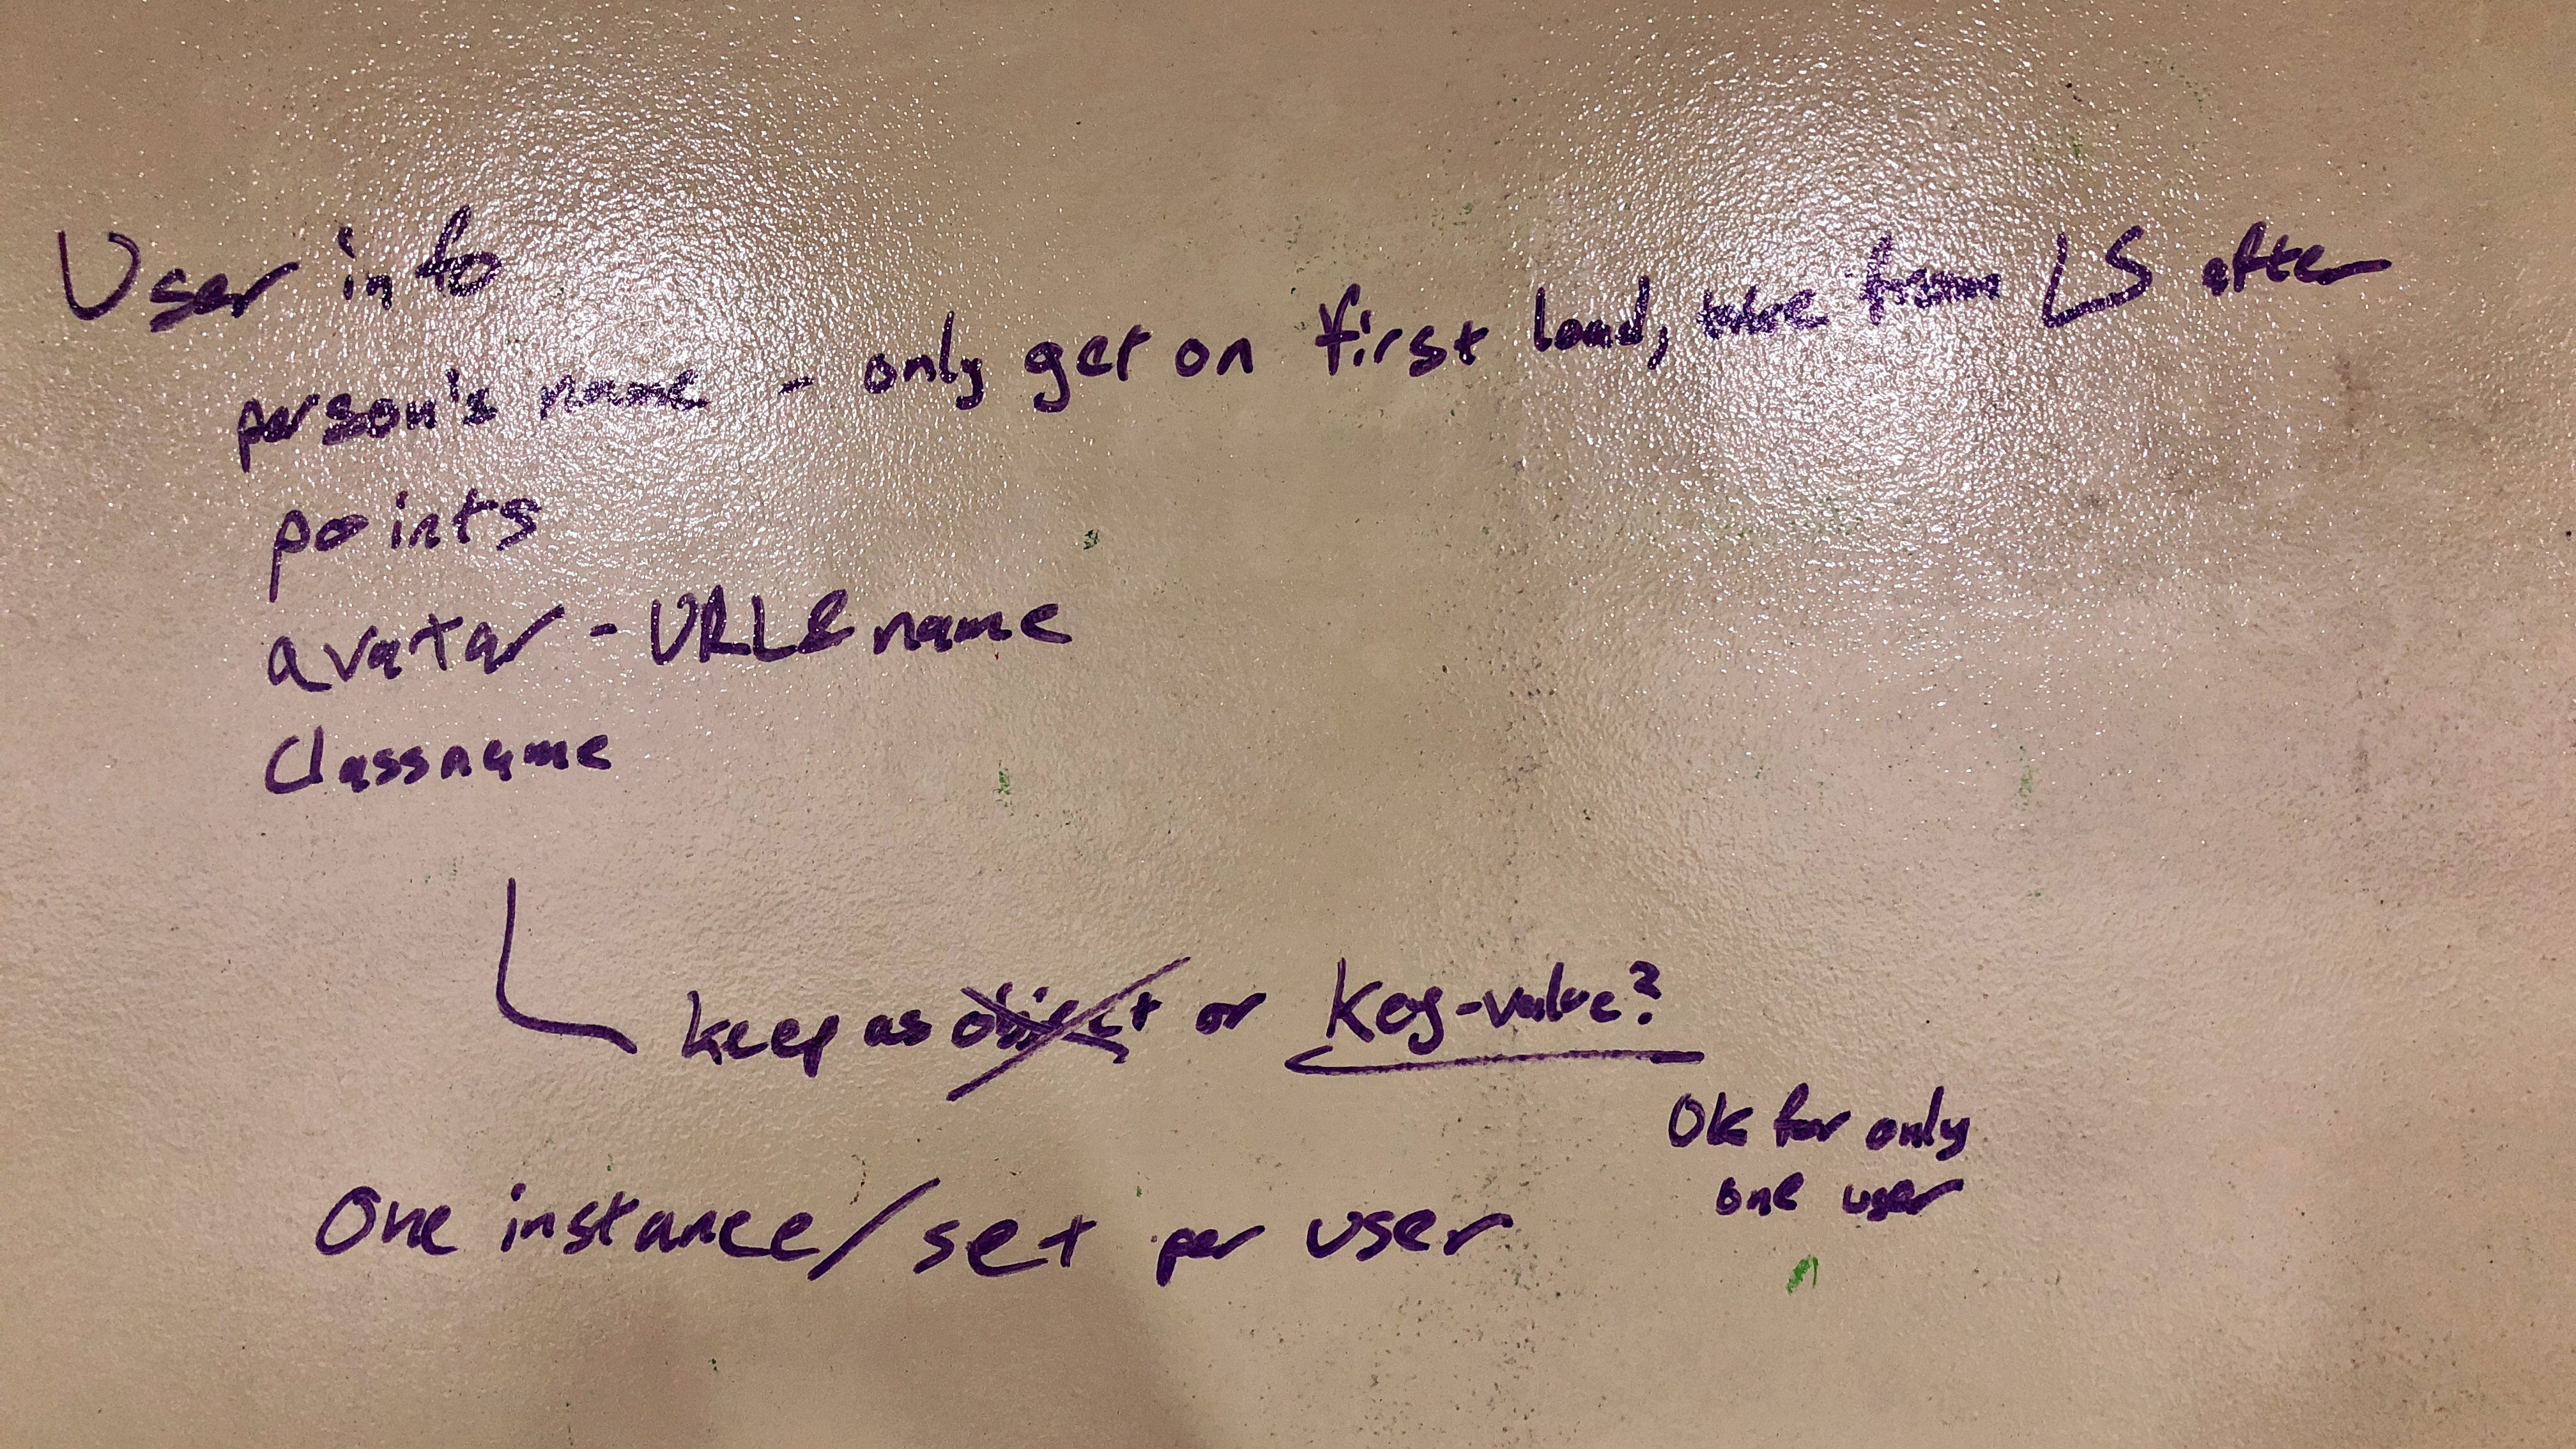 User info
person's name - only get on first load, take from LS after
points
avatar - URL & name
Classname
keep as object or key-value?
OK for only
one user
One instance/set per user